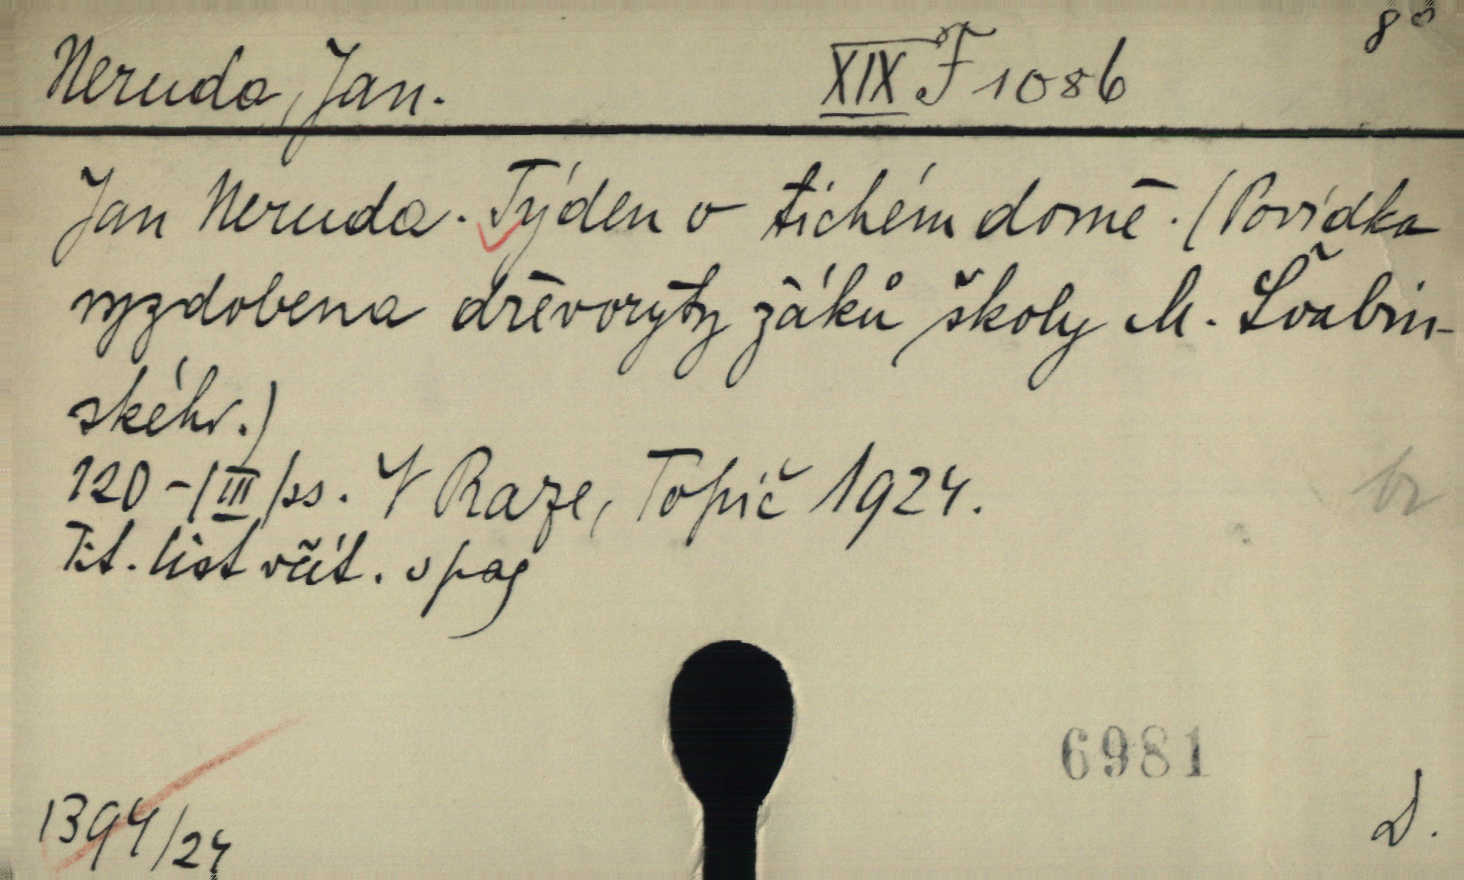 Neruda, Jan. XIX F 1086 8°
Jan Neruda. Týden v tichém domě. (Povídka
vyzdobena dřevoryty žáků školy M. Švabin-
ského.)
120 - (III) ss. V Praze, Topič 1924.
Tit. list včít. v pag
6981
1394/24
D.